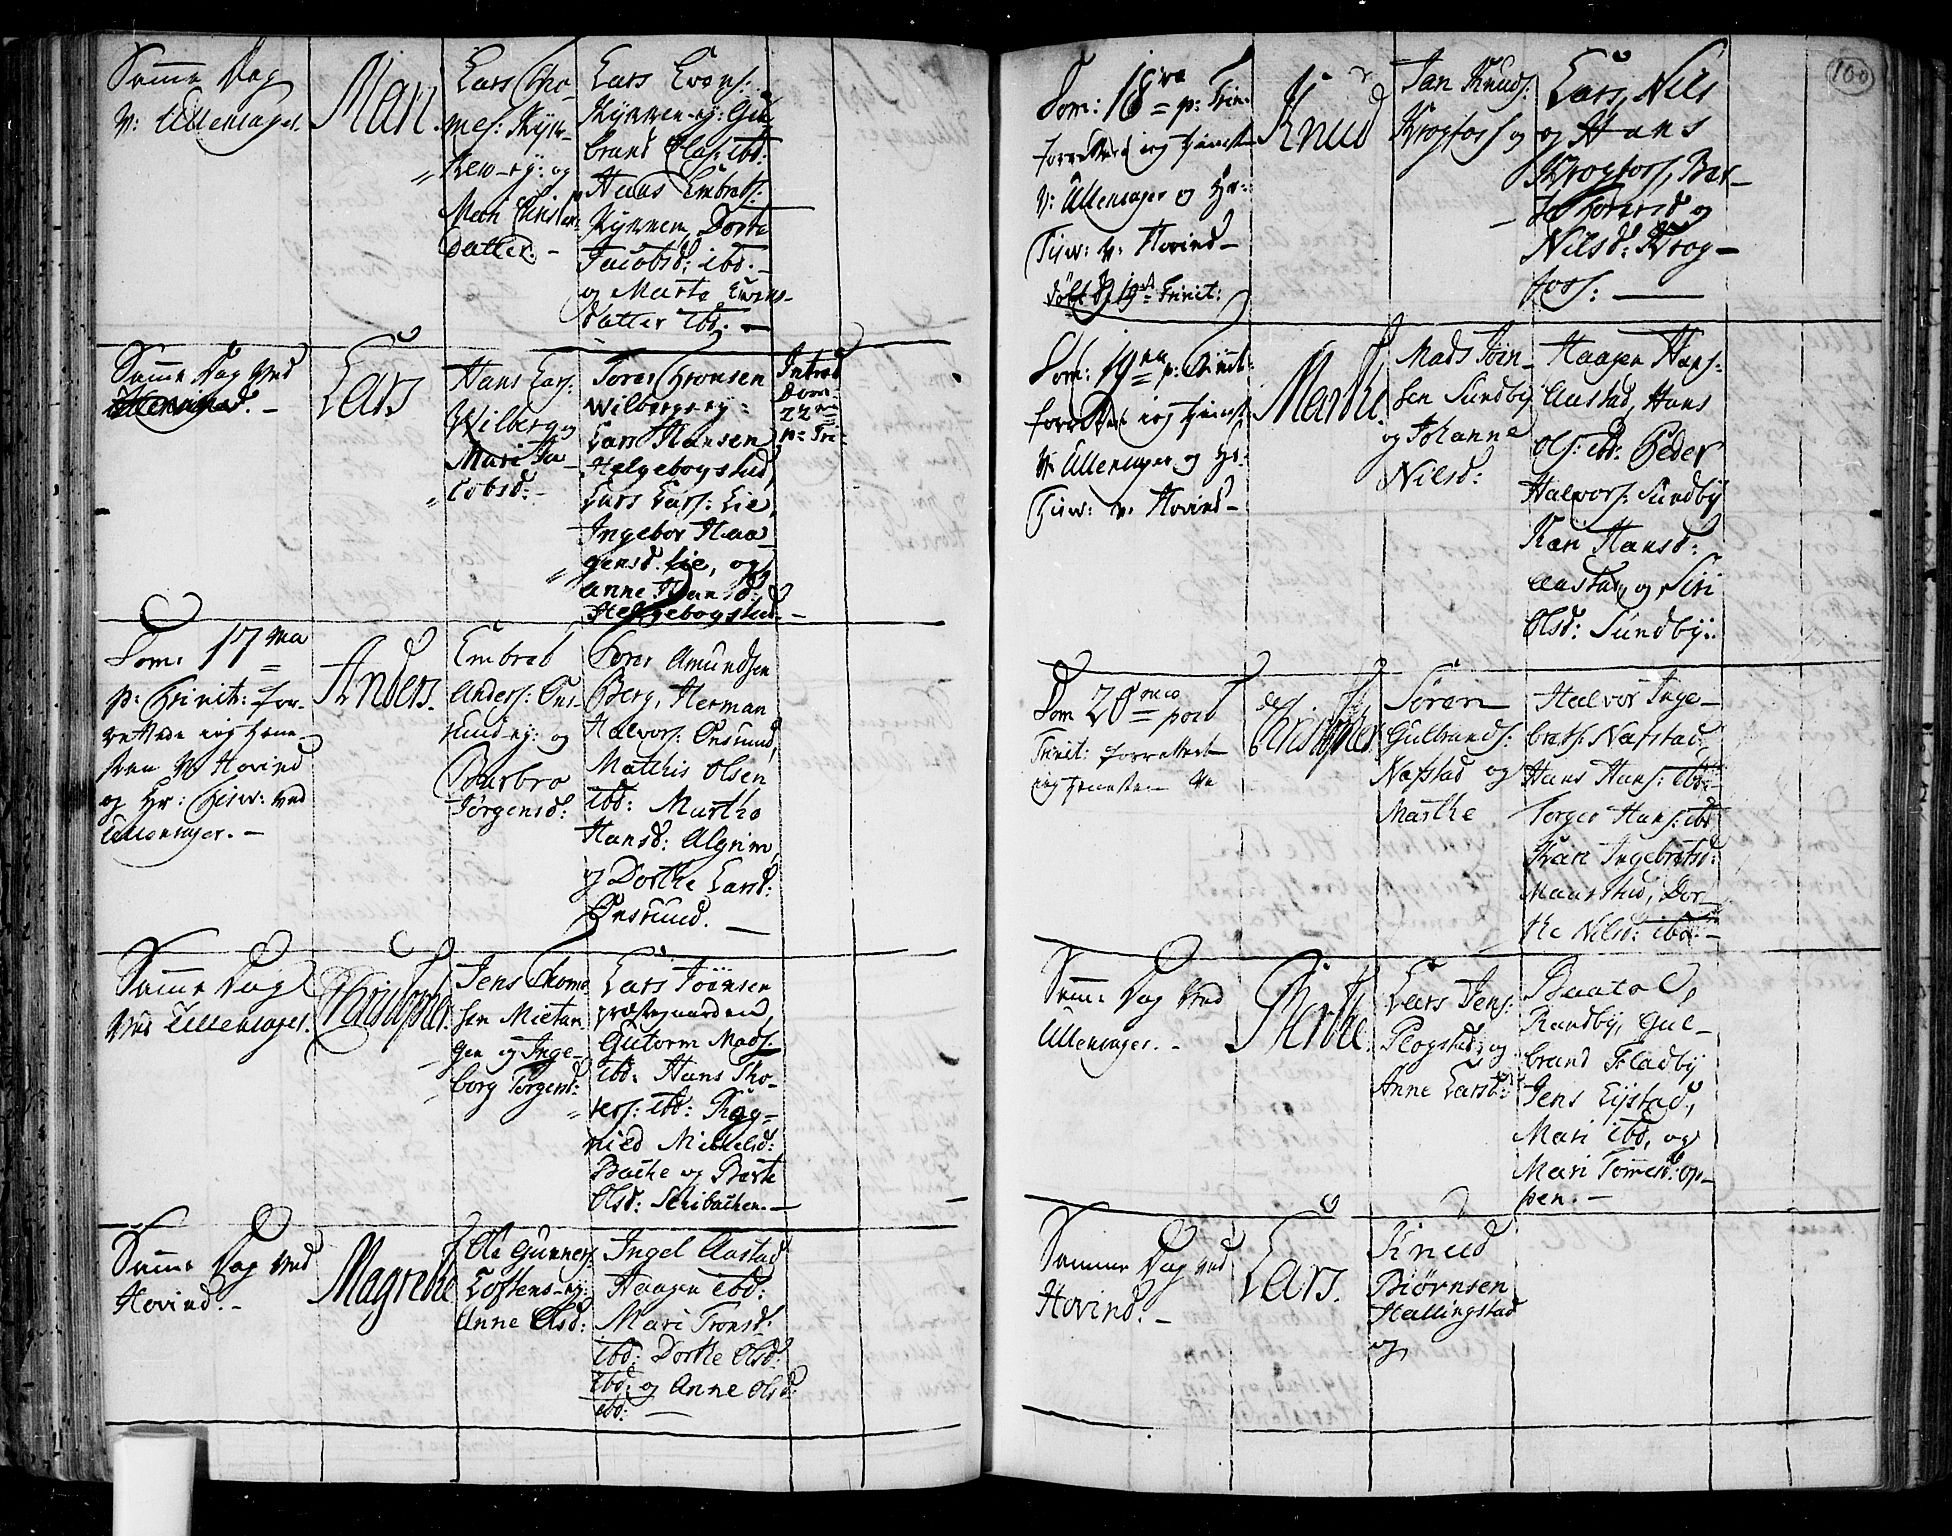 Samme Dag
v: Ullensager.
Mari.
Lars Tho-
mes: Kÿn-
ner-eÿ: og
Mari Christen-
datter. -
Lars Evens:
Kÿnner-eÿ: Gul-
brand Olas: ibd:
Hans Embrets:
Kÿnner, Dorte
Jacobsd: ibd. -
og Marte Evens-
datter ibd. -
Samme Dag ved
Lars
Hans Lars:
Wilberg og
Mari Ja-
cobsd: -
Tores Thronsen
Wilbergs-eÿ:
Lars Hansen
Helgebogstad,
Lars Lars: Lie,
Ingebor Haa-
gensd. Lie, og
Anne Hansd:
Helgebogstad. -
Introd
Dom
22
p: Tri-
Dom: 17 ma
p: Trinit: for-
rettede ieg tiene-
sten v: Hovind
og Hr: ved
Ullensager. -
Anders.
Embret
Anders: Øns-
rund-eÿ: og
Barbro
Jørgensd:
Tores Amundsen
Berg, Herman
Halvors: Ønsrund,
Mathis Olsen
ibd: Marthe
Hansd: Algrim,
og Dorthe Larsd:
Ønsrund. -
Samme Dag
ved Ullensager.
Christopher.
Jens Thom-
sen Mietan-
gen og Inge-
borg Torgersd:
Lars Jönsen
præstegaarden,
Gutorm Mads:
ibd: Hans Tho-
vers: ibd: Rag-
nild Mikkelsd:
Bache og Berte
Olsd: Schibachen. -
Samme Dag ved
Hovind. -
Magrethe
Ole Gunners:
Loftens-eÿ:
Anne Olsd:
Ingel Aastad
Haagen ibd:
Mari Tronsd:
ibd: Dorthe Olsd:
ibd, og Anne Olsd:
ibd: -
100
Dom: 18 va p: Trin:
forrettede ieg tienest-
v: Ullensager og Hr:
v: Hovind -
døbt D. 19 Trinit:
Knud
Jan Knuds:
Krogfoss og
Lars, Nils
og Hans
Krogfoss, Ber-
te Thorersd og
Nilsd: Krog-
foss: -
Dom: 19 na p: Trinit:
forrettede ieg tienest-
v: Ullensager og Hr:
v: Hovind -
Marthe.
Mads Jön-
sen Sundbÿ
og Johanne
Nilsd:
Haagen Hans:
Aastad, Hans
Ols: ibd: Peder
Halvors: Sundbÿ
Kari Hansd:
Aastad, og Siri
Olsd: Sundbÿ:
Dom 20 post
Trinit: forrettede
ieg tienesten
Christopher.
Sören
Gulbrands:
Nafstad og
Marthe
Halvor Inge-
brets: Nafstad
Hans Hans: ibd:
Torger Hans: ibd
Kari Ingebretsd:
Maarstad, Dor-
the Nilsd: ibd: -
Samme Dag ved
Ullensager. -
Birthe.
Lars Jens:
Plogstad, og
Anne Larsd:
Raato
Randbÿ, Gul-
brand Fladbÿ
Jens Eÿstad,
Mari ibd, og
Mari Tommesd: Op-
pen. -
Samme Dag ved
Hovind. -
Lars.
Knud
Biørnsen
Hallingstad
og